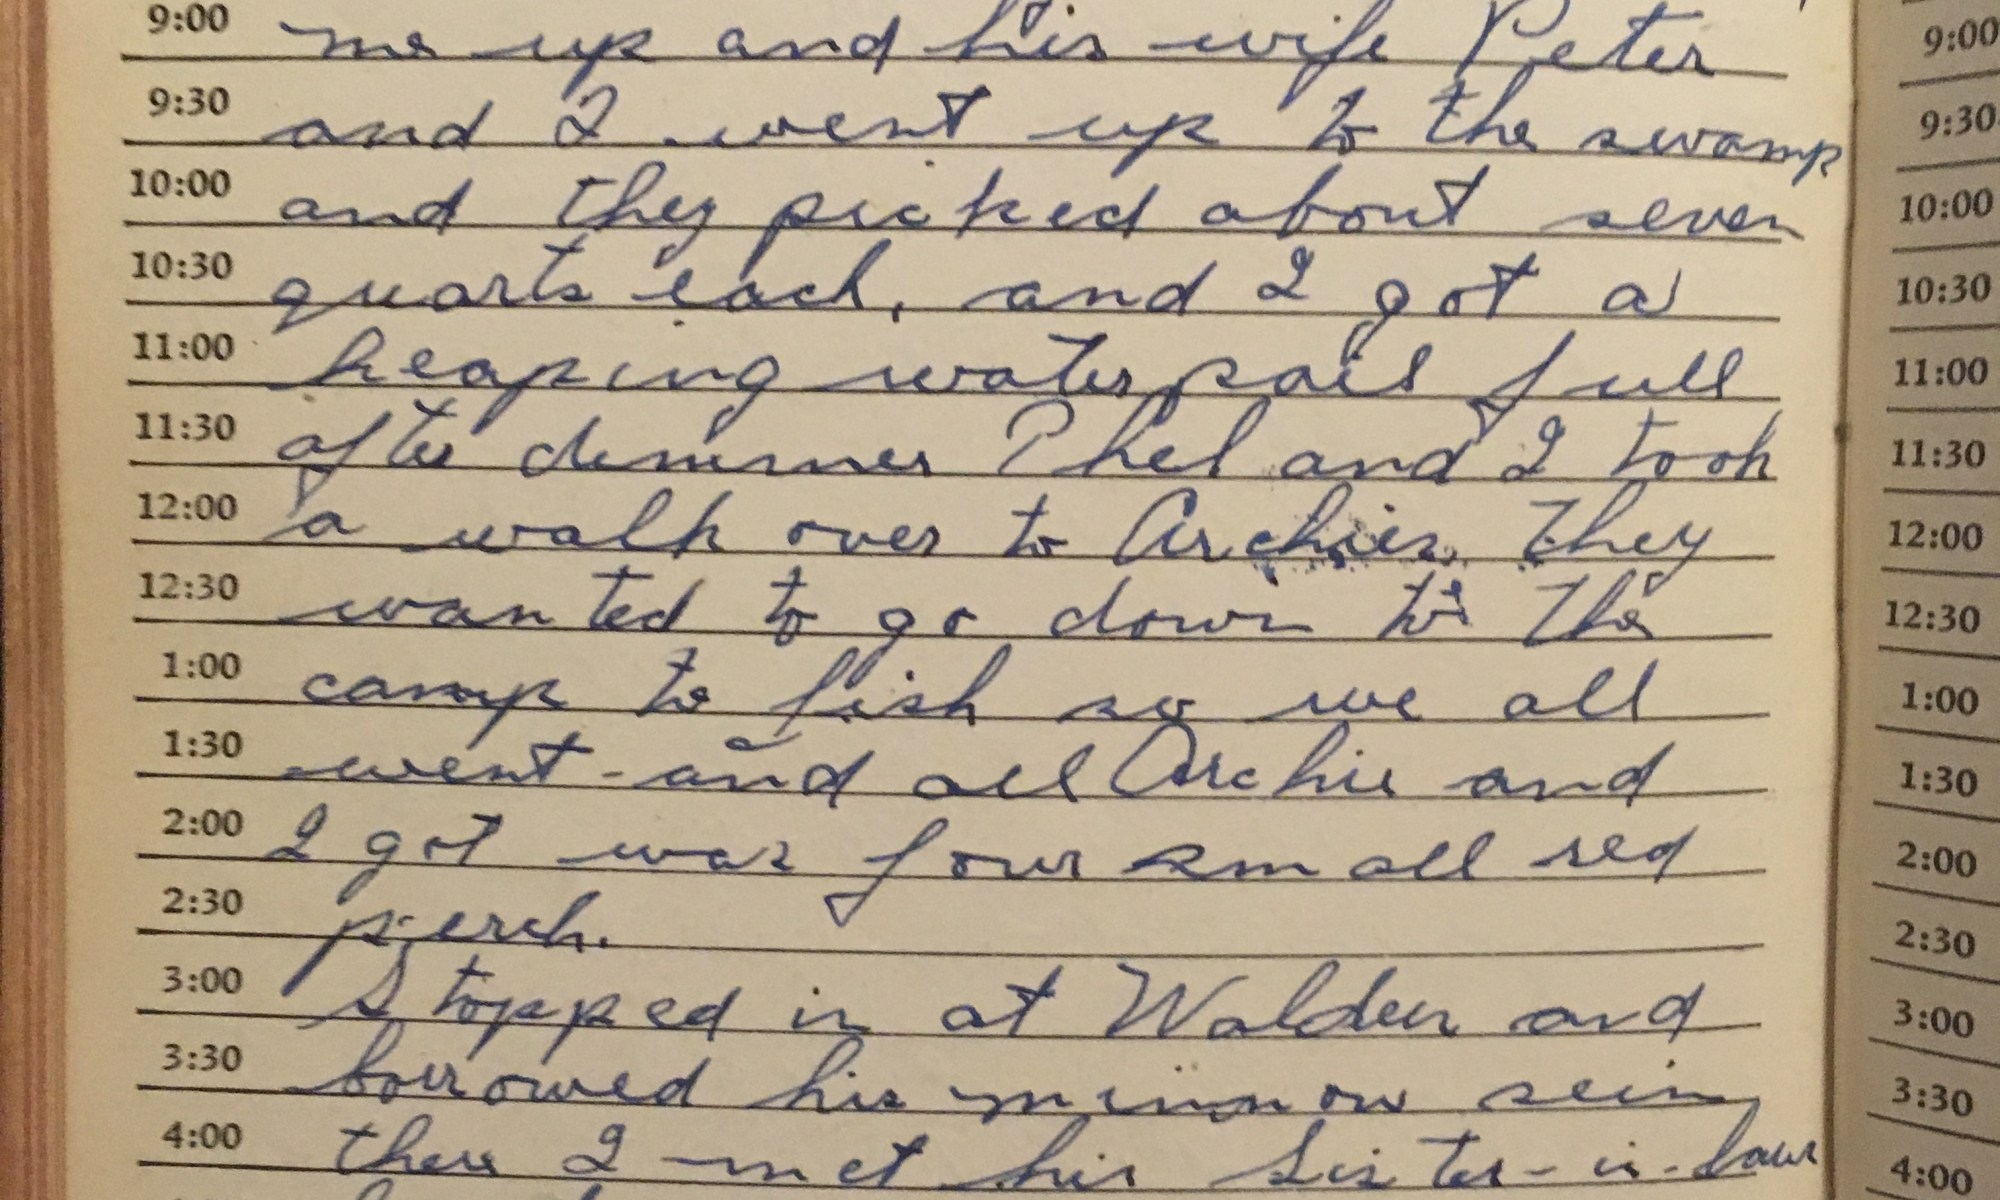 9:00 me up and his wife Peter 9:00
9:30 and I went up to the swamp 9:30
10:00 and they picked about seven 10:00
10:30 quarts each, and I got a 10:30
11:00 heaping water pail full 11:00
11:30 after dinner Phel and I took 11:30
12:00 a walk over to Archies. They 12:00
12:30 wanted to go down to the 12:30
1:00 camp to fish so we all 1:00
1:30 went - and all Archie and 1:30
2:00 I got was four small red 2:00
2:30 perch. 2:30
3:00 Stopped in at Walden and 3:00
3:30 borrowed his minnow sein 3:30
4:00 there I met his sister-in-law 4:00